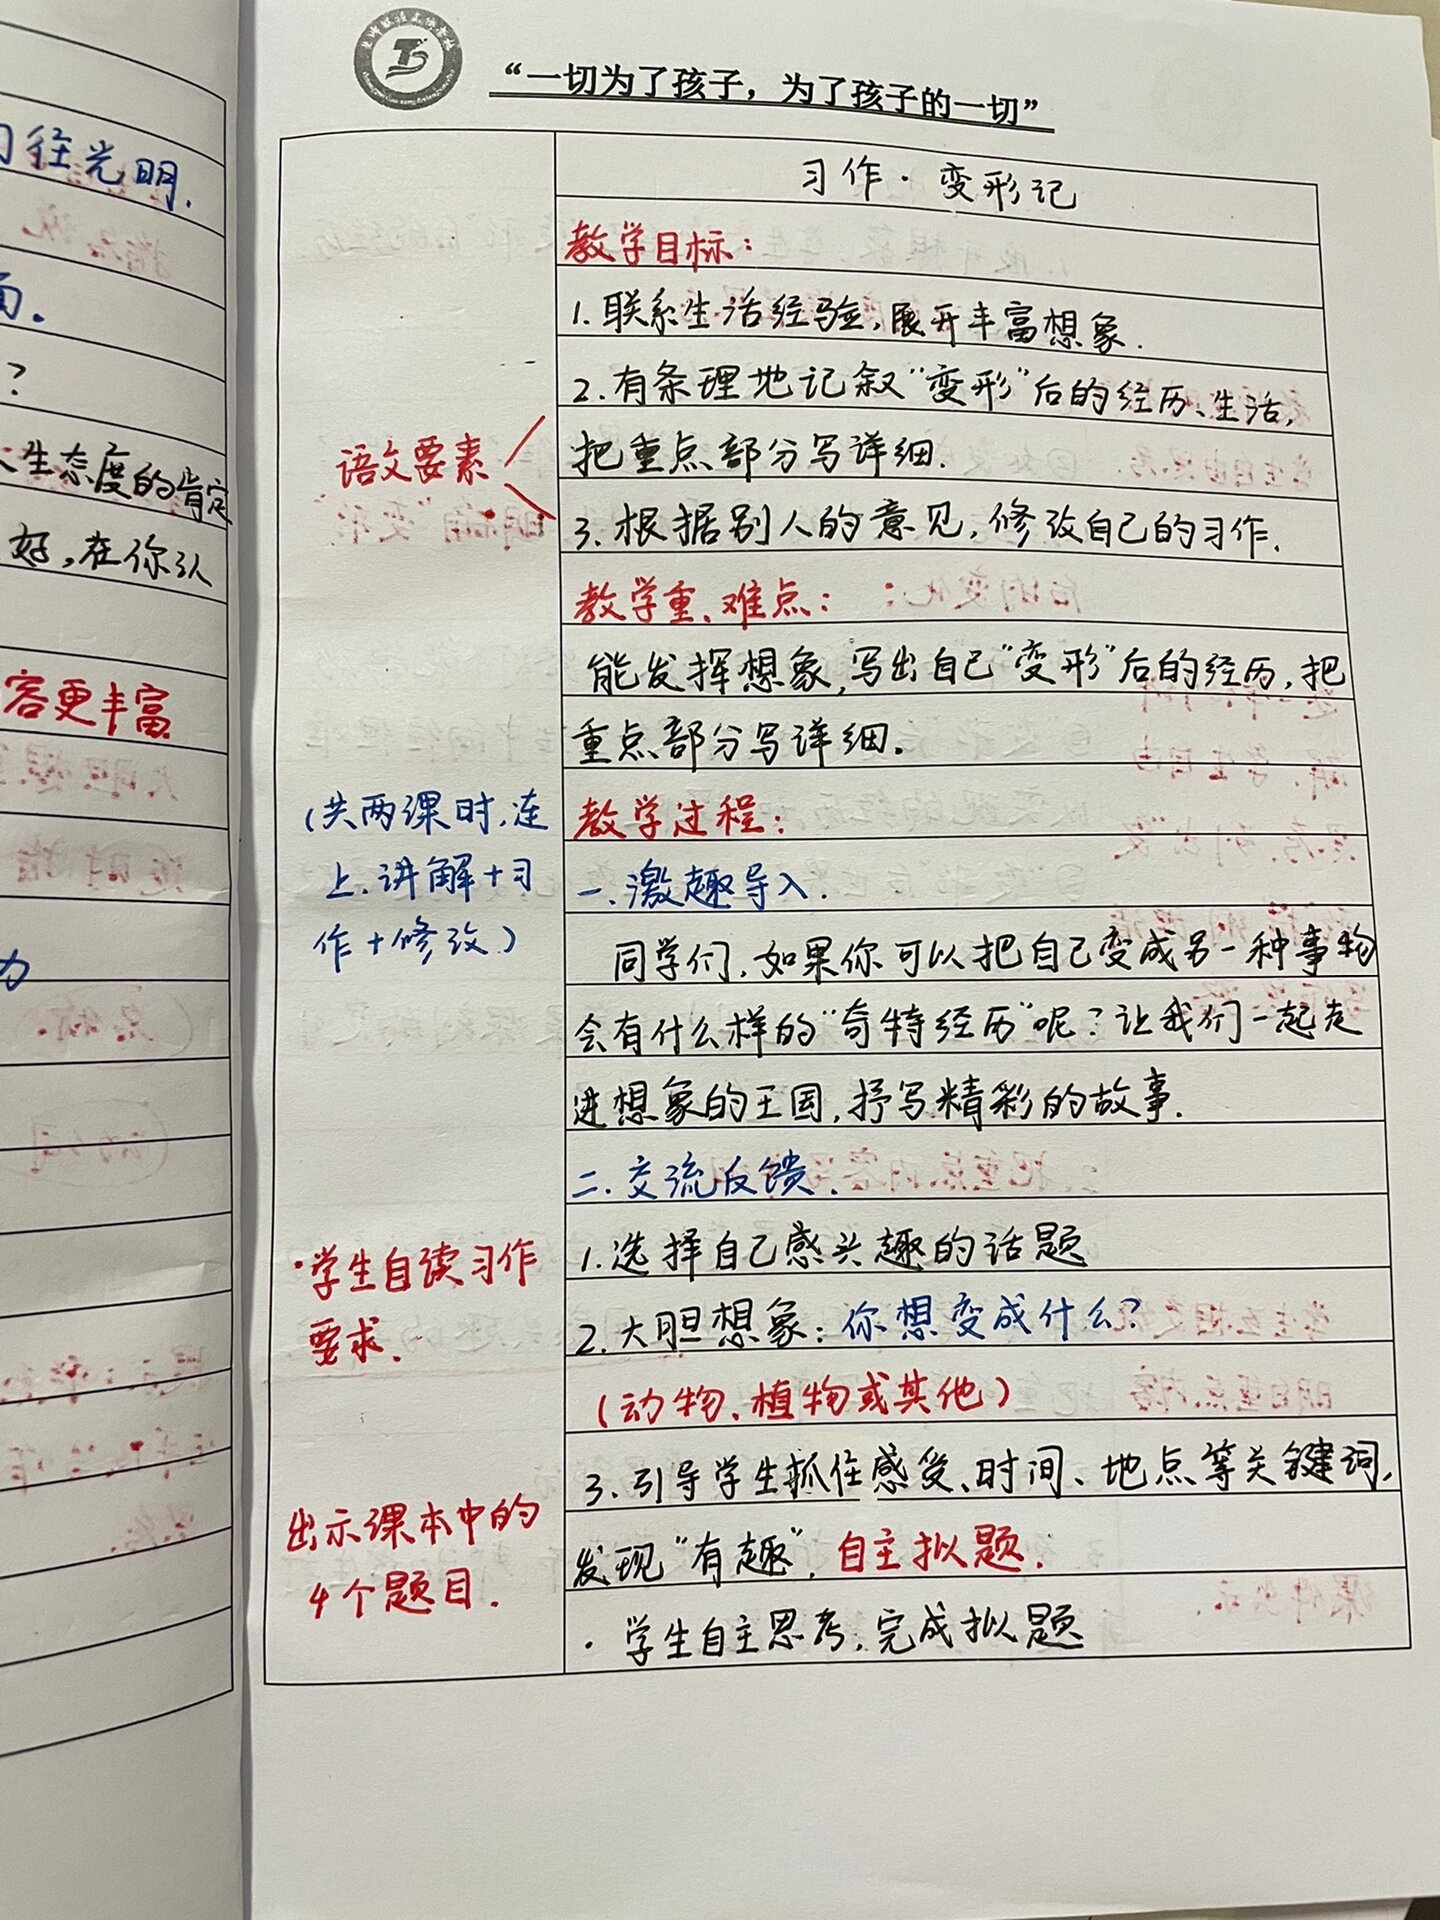 往光明.
面.
?
人生态度的肯定
好,在你认
容更丰富
力
“一切为了孩子，为了孩子的一切”
习作·变形记
教学目标:
1.联系生活经验,展开丰富想象.
2.有条理地记叙“变形”后的经历、生活,
把重点部分写详细.
语文要素
3.根据别人的意见,修改自己的习作.
教学重、难点:
能发挥想象,写出自己“变形”后的经历,把
重点部分写详细.
(共两课时,连
上.讲解+习
作+修改)
教学过程:
一.激趣导入.
同学们,如果你可以把自己变成另一种事物
会有什么样的“奇特经历”呢?让我们一起走
进想象的王国,抒写精彩的故事.
二.交流反馈.
·学生自读习作
要求.
1.选择自己感兴趣的话题
2.大胆想象:你想变成什么?
(动物、植物或其他)
出示课本中的
4个题目.
3.引导学生抓住感受、时间、地点等关键词,
发现“有趣”,自主拟题.
·学生自主思考,完成拟题